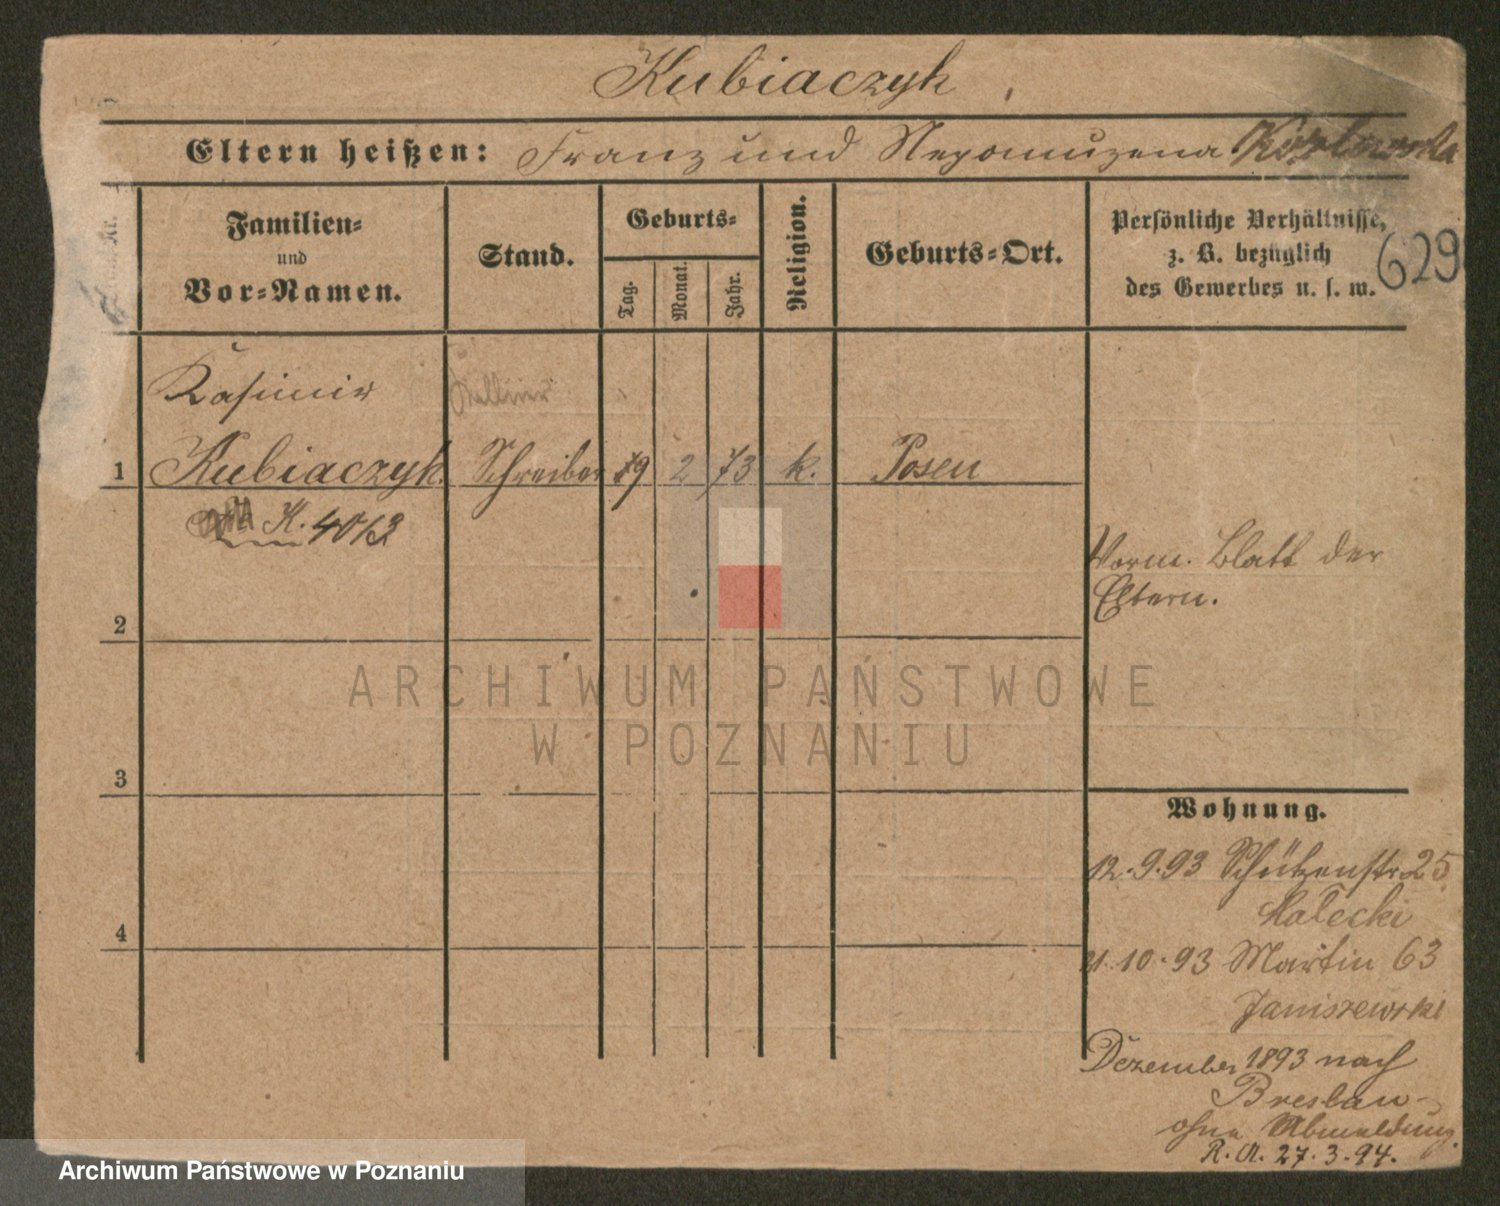 Kubiaczyk
Eltern heißen: Franz und Nepomuzena Kozlowska
Nr.
Familien-
und
Vor-Namen.
Stand.
Geburts-
Tag.
Monat.
Jahr.
Religion.
Geburts-Ort.
Persönliche Verhältnisse,
z. B. bezüglich
des Gewerbes u. s. w.
629
Kasimir
Kellner
1 Kubiaczyk. Schreiber 19 2 73 k. Posen
K. 4013
Vorm. Blatt der
Eltern.
2
ARCHIWUM PAŃSTWOWE
W POZNANIU
3
Wohnung.
12.9.93 Schützenstr. 25
Malecki
4
21.10.93 Martin 63
Janiszewski
Dezember 1893 nach
Breslau
ohne Abmeldung.
R. A. 27.3.94.
Archiwum Państwowe w Poznaniu